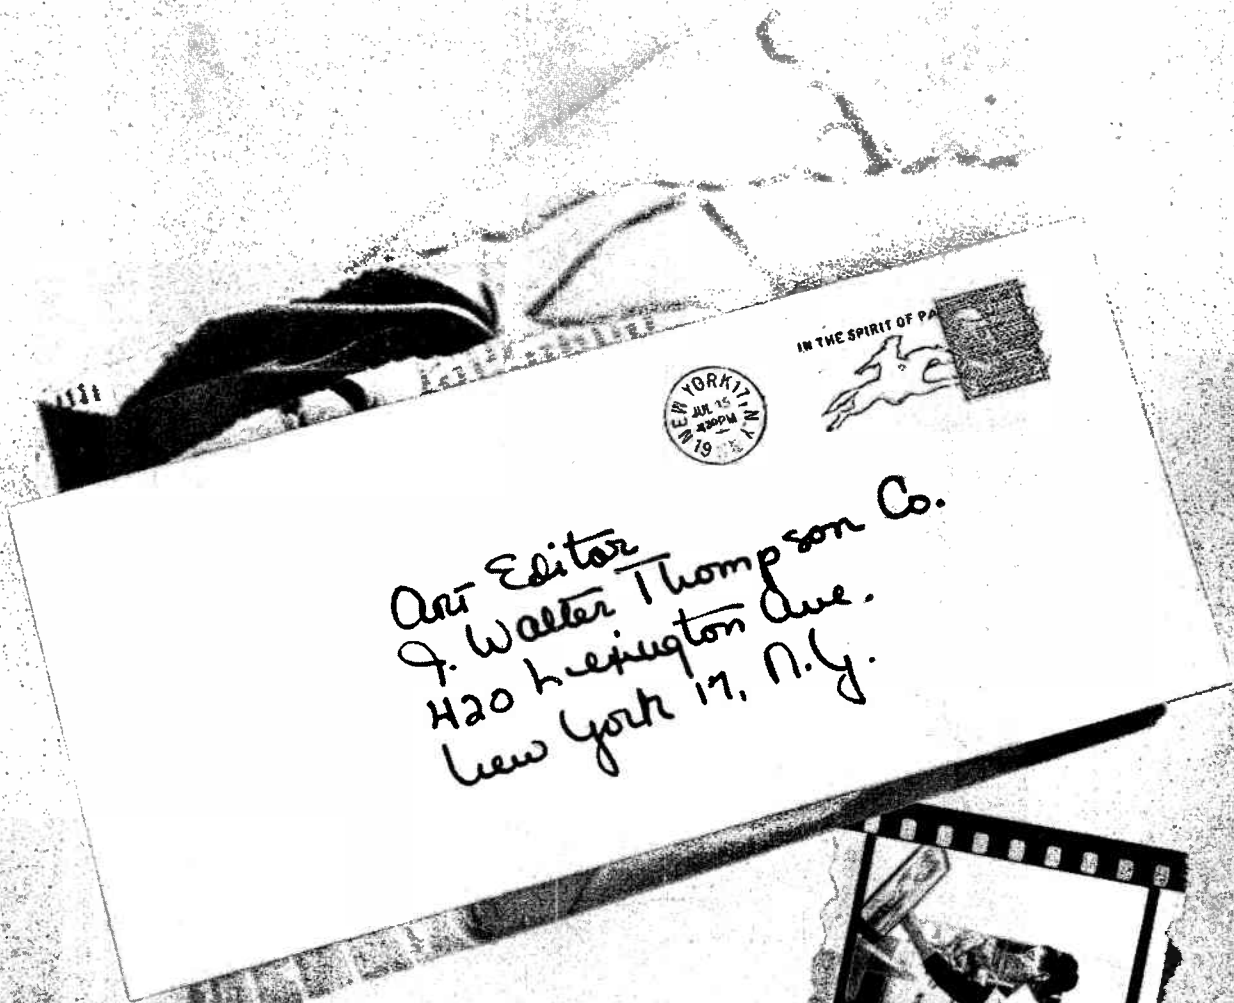 IN THE SPIRIT OF PA
NEW YORK 17, N.Y.
JUL 15
4:30PM
19
Art Editor
J. Walter Thompson Co.
420 Lexington Ave.
New York 17, N.Y.